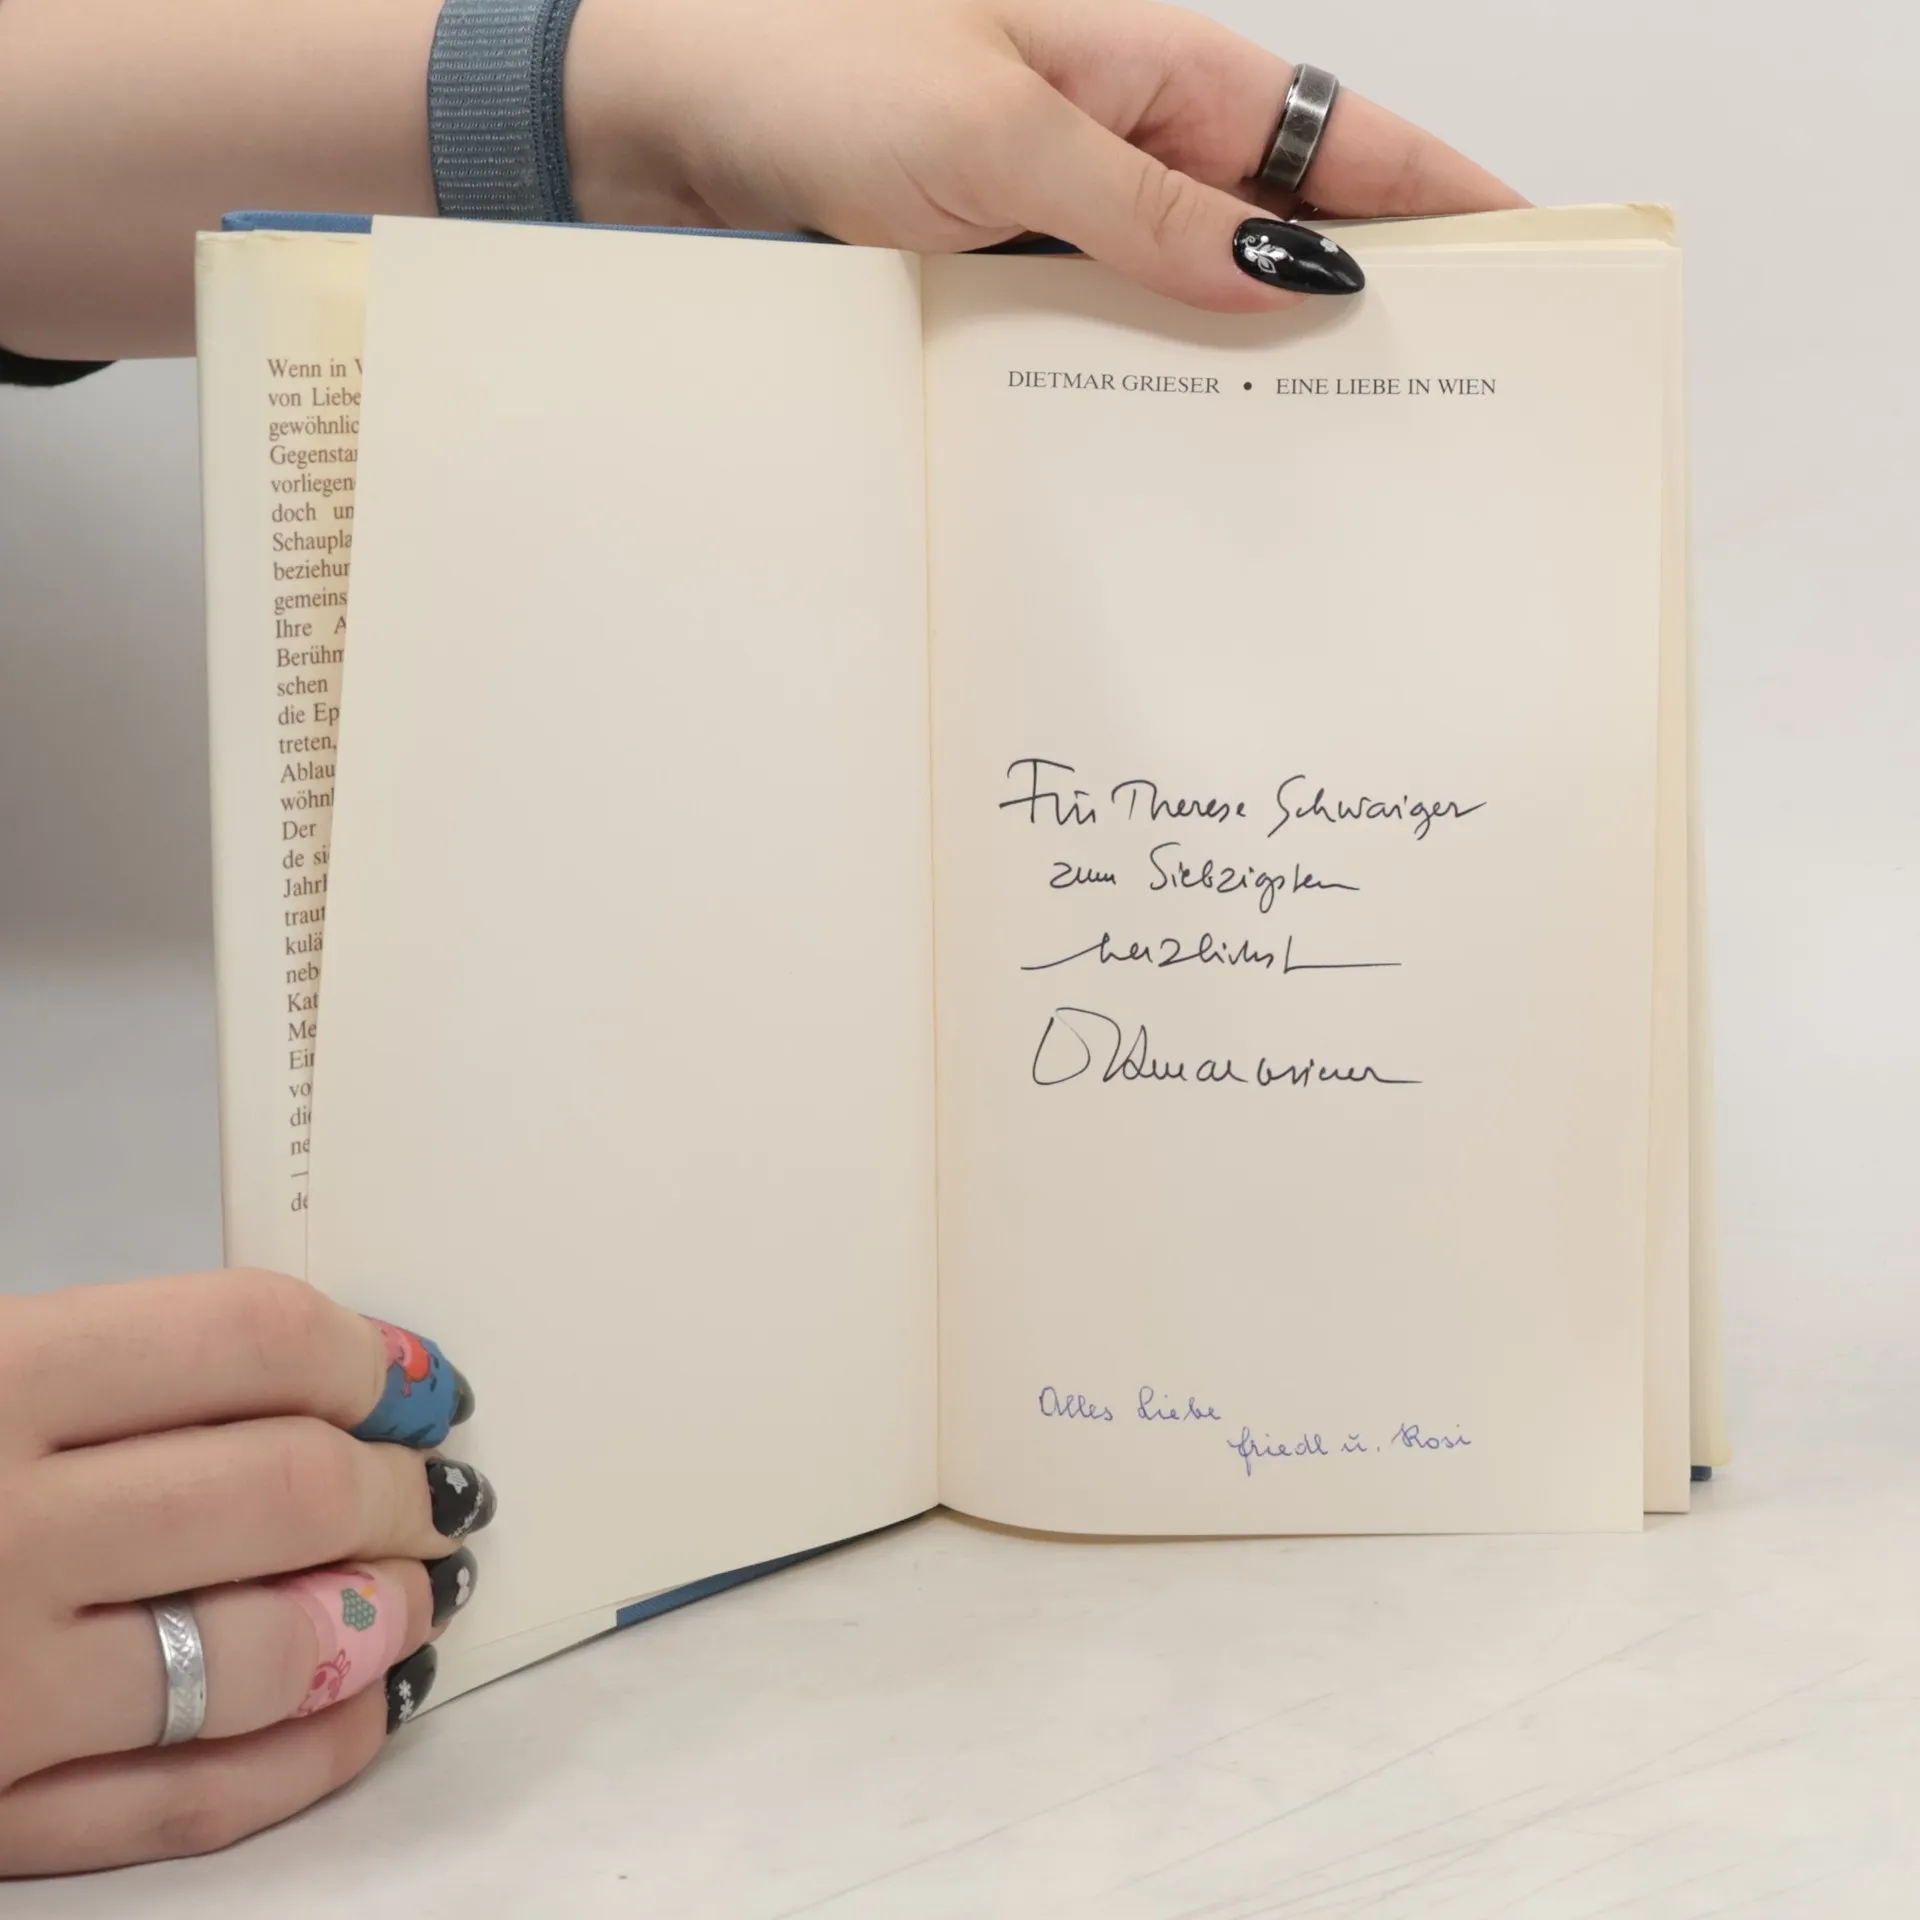 Wenn in
von Liebe
gewöhnlic
Gegenstan
vorliegen
doch un
Schaupla
beziehun
gemeins
Ihre A
Berühm
schen
die Ep
treten,
Ablau
wöhnl
Der
de si
Jahrh
traut
kulä
neb
Kat
Me
Ein
vo
die
ne
—
de
DIETMAR GRIESER • EINE LIEBE IN WIEN
Für Therese Schwaiger
zum Siebzigsten
herzlichst
Dietmar Grieser
Alles Liebe
Friedl u. Rosi